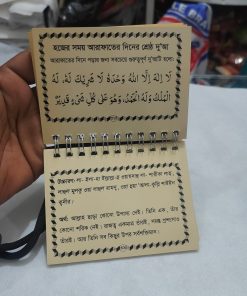 হজ্জের সময় আরাফাতের দিনের শ্রেষ্ঠ দু'আ
আরাফাতের দিনে পড়ার জন্য সবচেয়ে গুরুত্বপূর্ণ দু'আটি হলো:
لَا إِلٰهَ إِلَّا اللهُ وَحْدَهُ لَا شَرِيْكَ لَهُ، لَهُ
الْمُلْكُ وَلَهُ الْحَمْدُ، وَهُوَ عَلٰى كُلِّ شَيْءٍ قَدِيْرٌ
উচ্চারণ: লা- ইলা-হা ইল্লাল্ল-হু ওয়াহদাহু লা- শারীকা লাহু,
লাহুল মুলকু ওয়া লাহুল হামদু, ওয়া হুয়া 'আলা- কুল্লি শাইয়িন
ক্বদীর।
অর্থ: আল্লাহ ছাড়া কোনো উপাস্য নেই। তিনি এক, তাঁর
কোনো শরিক নেই। রাজত্ব একমাত্র তাঁরই, সমস্ত প্রশংসাও
তাঁরই। আর তিনি সব কিছুর উপর সর্বশক্তিমান।
LE BRA